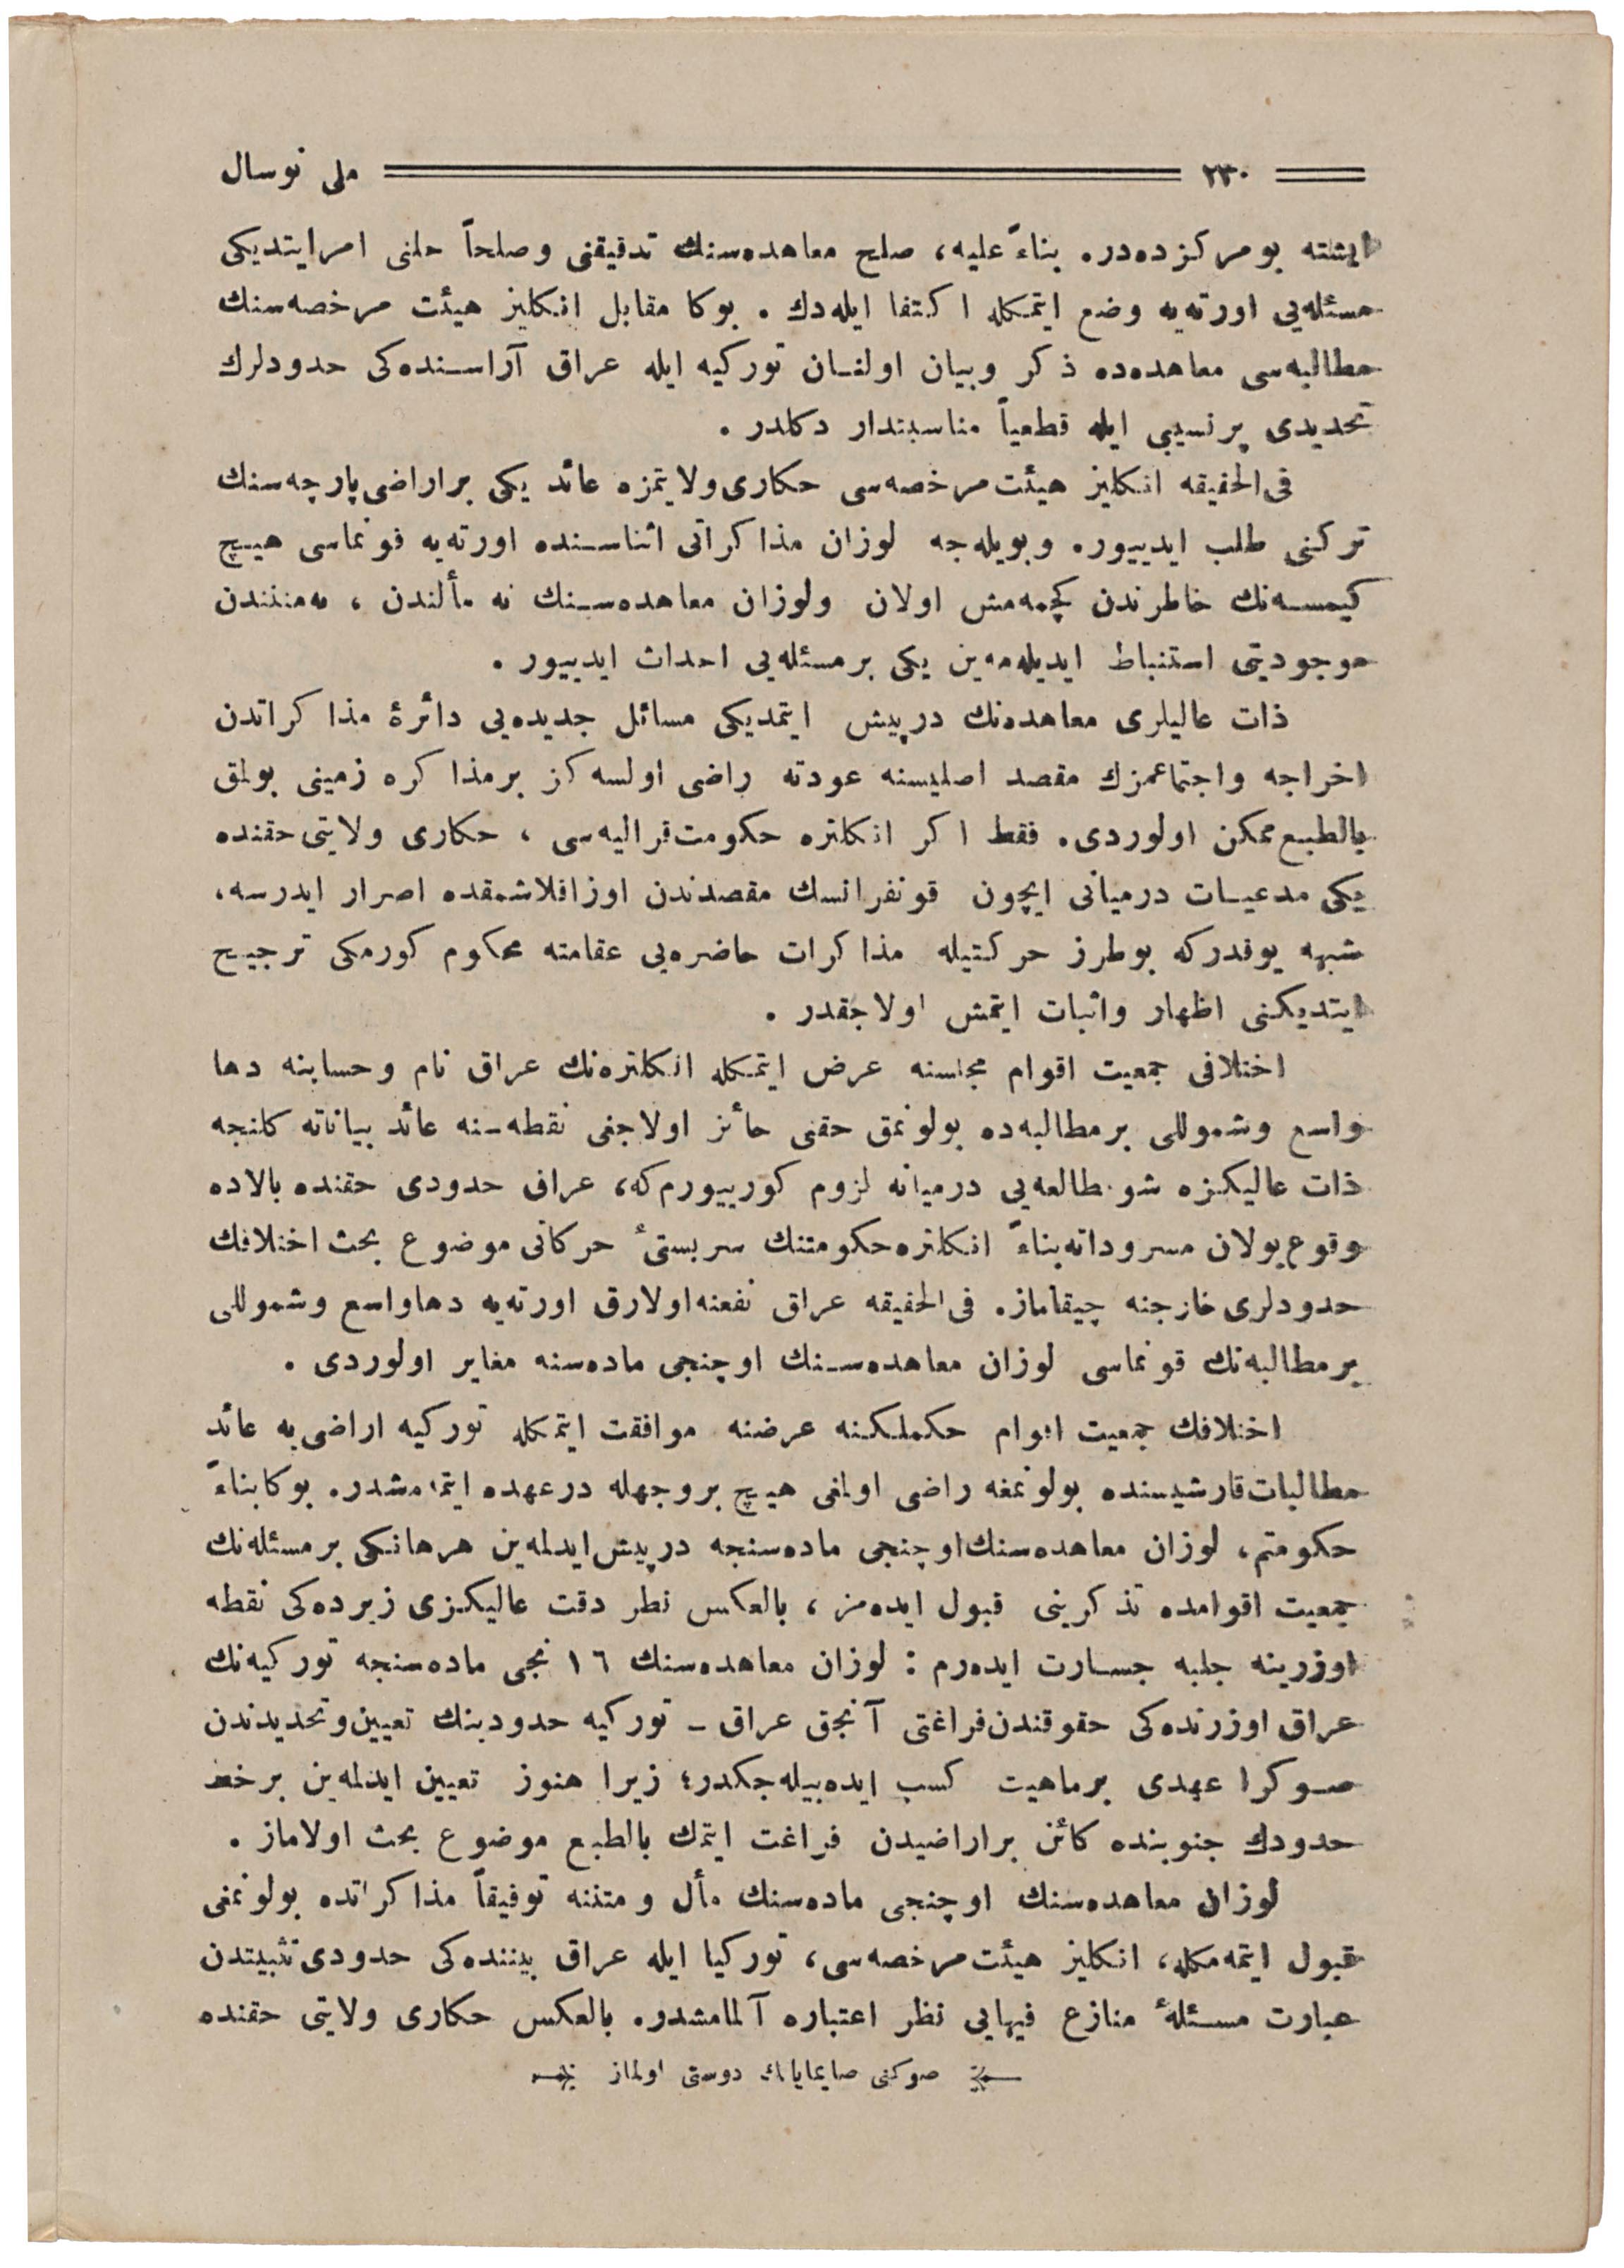 ٢٣٠ ملی نوسال
ایشته بو مرکزده‌در. بناءً علیه، صلح معاهده‌سنك تدقیقنی و صلحاً حلنی امر ایتدیکی
مسئله‌یی اورته‌یه وضع ایتمکله اکتفا ایله‌دك . بوکا مقابل انکلیز هیئت مرخصه‌سنك
مطالبه‌سی معاهده‌ده ذکر و بیان اولنان تورکیه ایله عراق آراسنده‌کی حدودلرك
تحدیدی پرنسیبی ایله قطعیاً مناسبتدار دکلدر .
فی‌الحقیقه انکلیز هیئت مرخصه‌سی حکاری ولایتمزه عائد یکی بر اراضی پارچه‌سنك
ترکنی طلب ایدییور. و بویله‌جه لوزان مذاکراتی اثناسنده اورته‌یه قونماسی هیچ
کیمسه‌نك خاطرندن کچمه‌مش اولان ولوزان معاهده‌سنك نه مألندن ، نه متنندن
موجودیتی استنباط ایدیله‌مه‌ین یکی بر مسئله‌یی احداث ایدییور .
ذات عالیلری معاهده‌نك درپیش ایتمدیکی مسائل جدیده‌یی دائرۀ مذاکراتدن
اخراجه و اجتماعمزك مقصد اصلیسنه عودته راضی اولسه‌کز بر مذاکره زمینی بولمق
بالطبع ممکن اولوردی. فقط اکر انکلتره حکومت قرالیه‌سی ، حکاری ولایتی حقنده
یکی مدعیات درمیانی ایچون قونفرانسك مقصدندن اوزاقلاشمقده اصرار ایدرسه،
شبهه یوقدرکه بو طرز حرکتیله مذاکرات حاضره‌یی عقامته محکوم کورمکی ترجیح
ایتدیکنی اظهار و اثبات ایتمش اولاجقدر .
اختلافی جمعیت اقوام مجلسنه عرض ایتمکله انکلتره‌نك عراق نام و حسابنه دها
واسع و شموللی بر مطالبه‌ده بولونمق حقنی حائز اولاجغی نقطه‌سنه عائد بیاناته کلنجه
ذات عالیکزه شو مطالعه‌یی درمیانه لزوم کورییورم که، عراق حدودی حقنده بالاده
وقوع بولان مسروداته بناءً انکلتره حکومتنك سربستیٔ حرکاتی موضوع بحث اختلافك
حدودلری خارجنه چیقاماز. فی‌الحقیقه عراق نفعنه اولارق اورته‌یه دها واسع و شموللی
بر مطالبه‌نك قونماسی لوزان معاهده‌سنك اوچنجی ماده‌سنه مغایر اولوردی .
اختلافك جمعیت اقوام حکملکنه عرضنه موافقت ایتمکله تورکیه اراضی‌یه عائد
مطالبات قارشیسنده بولونمغه راضی اولمغی هیچ بر وجهله درعهده ایتمه‌مشدر. بوکا بناءً
حکومتم، لوزان معاهده‌سنك اوچنجی ماده‌سنجه درپیش ایدلمه‌ین هر هانکی بر مسئله‌نك
جمعیت اقوامده تذکرینی قبول ایده‌مز ، بالعکس نظر دقت عالیکزی زیرده‌کی نقطه
اوزرینه جلبه جسارت ایده‌رم : لوزان معاهده‌سنك ١٦ نجی ماده‌سنجه تورکیه‌نك
عراق اوزرنده‌کی حقوقندن فراغتی آنجق عراق ـ تورکیه حدودینك تعیین و تحدیدندن
صوکرا عهدی بر ماهیت کسب ایده‌بیله‌جکدر؛ زیرا هنوز تعیین ایدلمه‌ین بر خط
حدودك جنوبنده کائن بر اراضیدن فراغت ایتمك بالطبع موضوع بحث اولاماز .
لوزان معاهده‌سنك اوچنجی ماده‌سنك مأل و متننه توفیقاً مذاکراتده بولونمغی
قبول ایتمه‌مکله، انکلیز هیئت مرخصه‌سی، تورکیا ایله عراق بیننده‌کی حدودی تثبیتدن
عبارت مسئلۀ منازع فیهایی نظر اعتباره آلمامشدر. بالعکس حکاری ولایتی حقنده
صوکنی صایمایانك دوستی اولماز